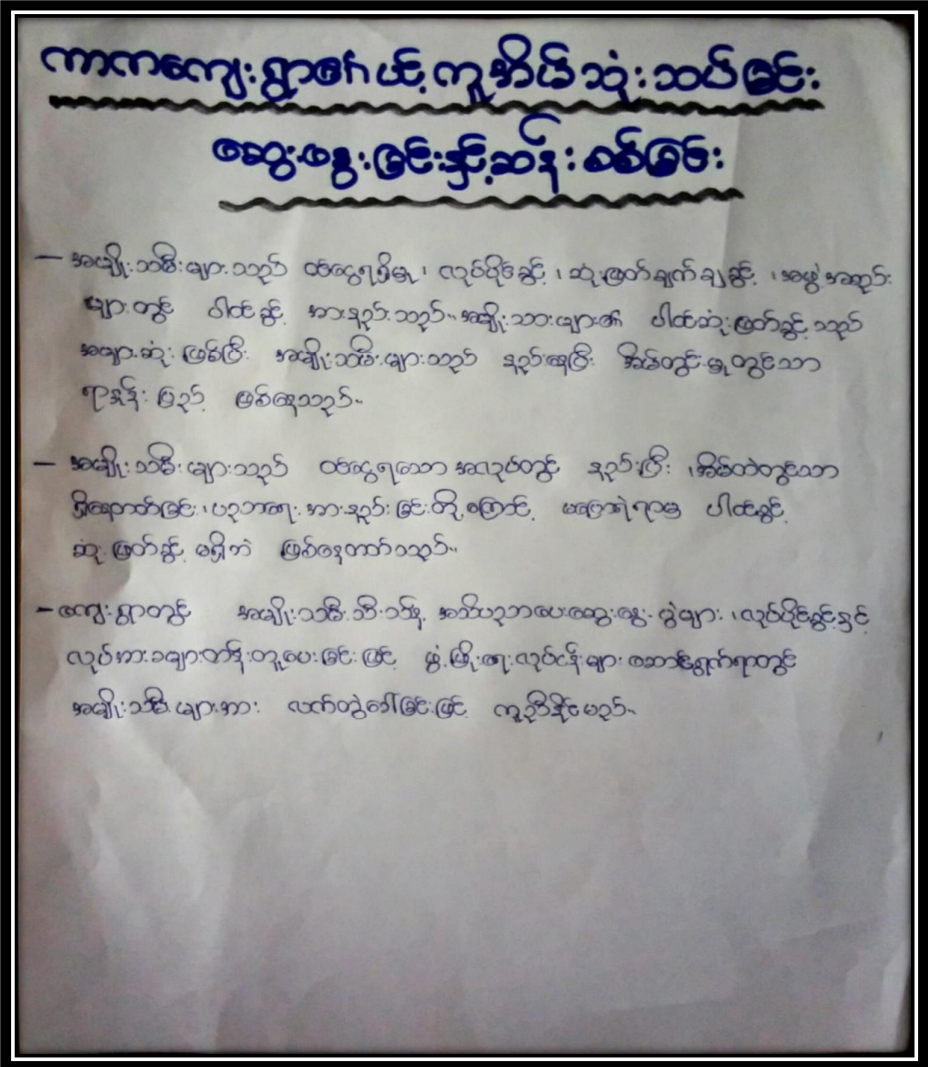 ကာကကျေးရွာ၏ ယင့်ကူအိပ်သုံးသပ်ခြင်း
ဆွေးနွေးခြင်းနှင့်ဆန်းစစ်ခြင်း
- အမျိုးသမီးများသည် ထင်ငွေရရှိမှု၊ လုပ်ပိုင်ခွင့်၊ ဆုံးဖြတ်ချက်ချခွင့်၊ အဖွဲ့အစည်း
များတွင် ပါဝင်ခွင့် အားနည်းသည်။ အမျိုးသားများ၏ ပါဝင်ဆုံးဖြတ်ခွင့်သည်
အများဆုံးဖြစ်ပြီး အမျိုးသမီးများသည် နည်းနေပြီး အိမ်တွင်းမှုတွင်သာ
ရာနှုန်းပြည့် ဖြစ်နေသည်။
- အမျိုးသမီးများသည် ဝင်ငွေရသောအလုပ်တွင် နည်းပြီး ၊အိမ်ထဲတွင်သာ
ရှိနေတတ်ခြင်း၊ပညာရေး အားနည်းခြင်းတို့ကြောင့် မပြောရဲရာမှ ပါဝင်ခွင့်
ဆုံးဖြတ်ခွင့် မရှိဘဲ ဖြစ်နေတတ်သည်။
- ကျေးရွာတွင် အမျိုးသမီးသီးသန့် အသိပညာပေးဆွေးနွေးပွဲများ ၊လုပ်ပိုင်ခွင့်နှင့်
လုပ်အားခများတန်းတူပေးခြင်းဖြင့် ဖွံ့ဖြိုးရေးလုပ်ငန်းများ ဆောင်ရွက်ရာတွင်
အမျိုးသမီးများအား လက်တွဲခေါ်ခြင်းဖြင့် ကူညီနိုင်မည်။